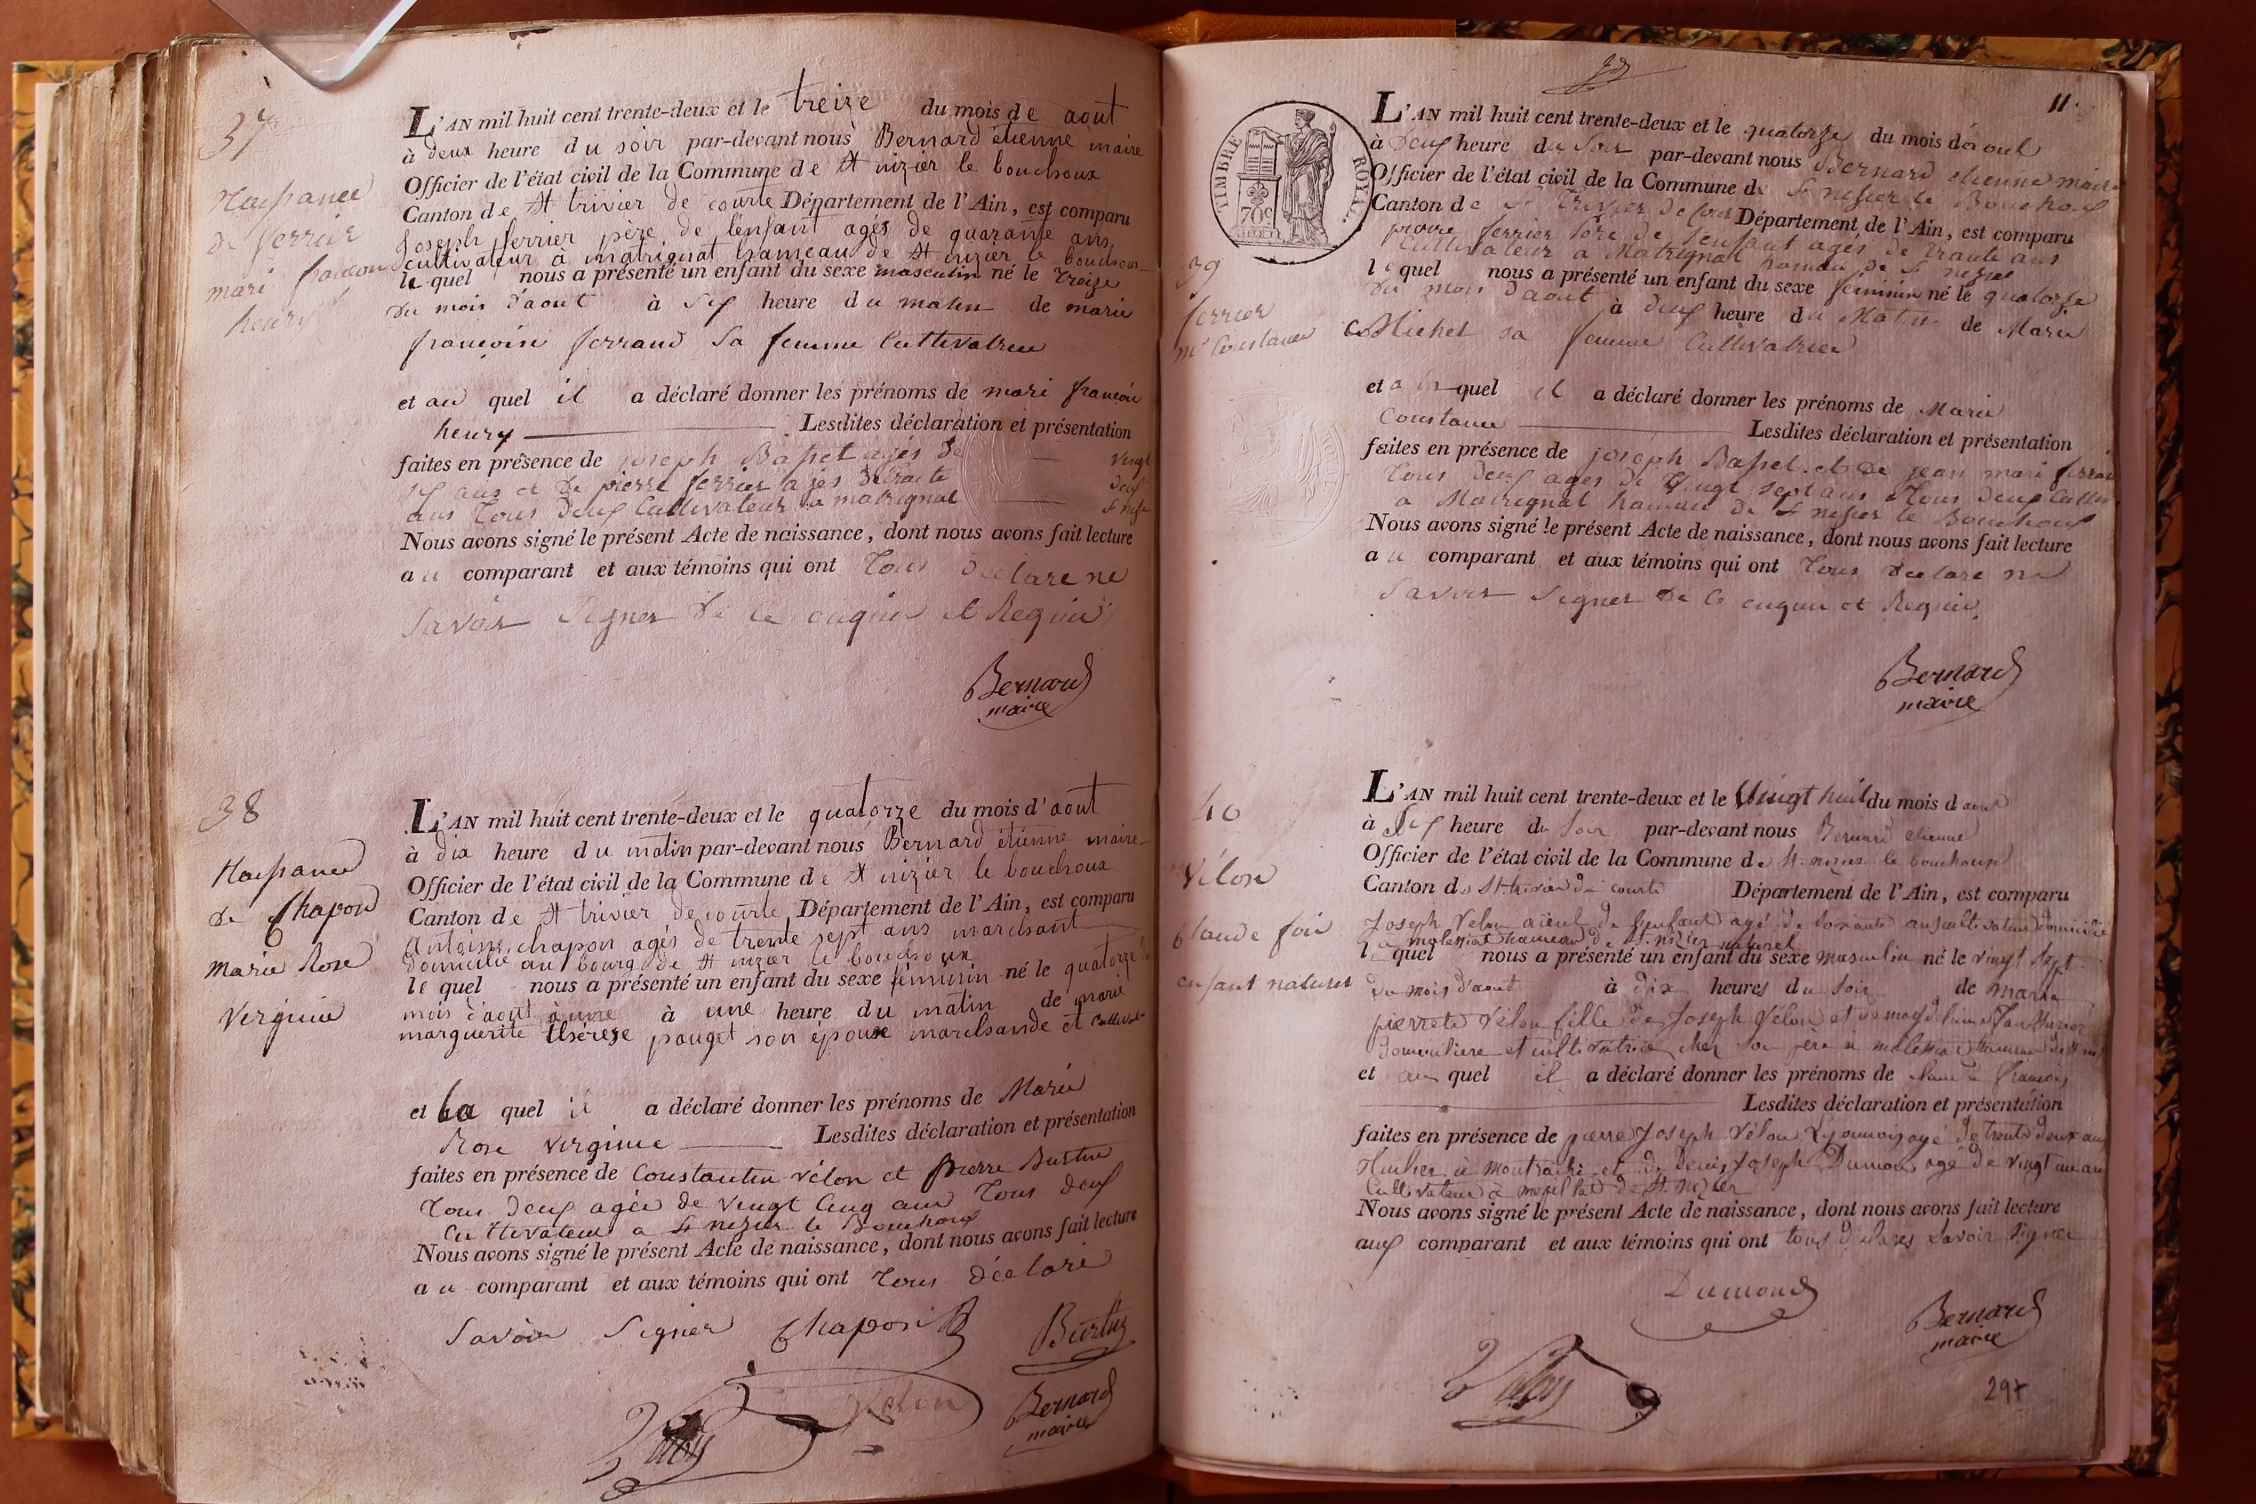 37
Naissance
de ferrier
mari francois
henry
L'AN mil huit cent trente-deux et le treize du mois de aout
à deux heure du soir par-devant nous Bernard étienne maire
Officier de l'état civil de la Commune de St nizier le bouchoux
Canton de St trivier de courte Département de l'Ain, est comparu
Joseph ferrier père de l'enfant agés de quarante ans
cultivateur a matrignat hameau de St nizier le bouchoux
le quel nous a présenté un enfant du sexe masculin né le treize
du mois d'aout à heure du matin de marie
françoise ferrand sa femme Cultivatrice
et au quel il a déclaré donner les prénoms de mari francois
henry Lesdites déclaration et présentation
faites en présence de joseph Bapet agés de vingt
ans et de pierre ferrier agés de trante deux
ans tous deux Cultivateur a matrignat
Nous avons signé le présent Acte de naissance, dont nous avons fait lecture
au comparant et aux témoins qui ont tous declare ne
savoir signer de ce enquie et Requie
Bernard
maire
38
Naissance
de Chapon
Marie Rose
Virginie
L'AN mil huit cent trente-deux et le quatorze du mois d'aout
à dix heure du matin par-devant nous Bernard étienne maire
Officier de l'état civil de la Commune de St nizier le bouchoux
Canton de St trivier de courte Département de l'Ain, est comparu
Antoine chapon agés de trente sept ans marchant
domicilié au bourg de St nizier le bouchoux
le quel nous a présenté un enfant du sexe féminin né le quatorze
mois d'aout à une à une heure du matin de marie
marguerite thérese pouget son épouse marchande et
et la quel il a déclaré donner les prénoms de Marie
Rose virginie Lesdites déclaration et présentation
faites en présence de Constantin vélon et pierre Burtin
Tous deux agée de vingt Cinq ans Tous deux
Cultivateur a St nizier le Bouchoux
Nous avons signé le présent Acte de naissance, dont nous avons fait lecture
au comparant et aux témoins qui ont Tous déclaré
savoir signer Chapon Burtin
Velon
Bernard
maire
11
TIMBRE ROYAL
70c
39
ferrier
me Constance
L'AN mil huit cent trente-deux et le quatorze du mois d'aout
à deux heure du soir par-devant nous Bernard etienne maire
Officier de l'état civil de la Commune de St nesier le Bouchoux
Canton de St trivier de cour Département de l'Ain, est comparu
pierre ferrier père de l'enfant agés de trante ans
Cultivateur a Matrignat hameau de St nesier
le quel nous a présenté un enfant du sexe feminin né le quatorze
du mois d'aout à deux heure du Matin de Marie
Michel sa femme Cultivatrice
et a la quel il a déclaré donner les prénoms de Marie
Constance Lesdites déclaration et présentation
faites en présence de joseph Bapet et de jean mari ferrier
tous deux ages de vingt sept ans tous deux Cultiv
a Matrignat hameau de St nesier le Bouchoux
Nous avons signé le présent Acte de naissance, dont nous avons fait lecture
au comparant et aux témoins qui ont tous declare ne
savoir signer de ce enquie et Requie
Bernard
maire
40
Vélon
Claude
enfant naturel
L'AN mil huit cent trente-deux et le vingt huit du mois d aout
à heure du soir par-devant nous Bernard etienne
Officier de l'état civil de la Commune de St nizier le bouchoux
Canton de St trivier de courte Département de l'Ain, est comparu
Joseph Vélon aïeul de l'enfant agé de soixante ans cultivateur domicilié
a hameau de St nizier naturel
le quel nous a présenté un enfant du sexe masculin né le vingt sept
du mois d'aout à dix heures du soir de marie
pierrete vélon fille de Joseph Vélon et de
domiciliere et cultivatrice chez son père a hameau de St
et au quel il a déclaré donner les prénoms de Claude francois
Lesdites déclaration et présentation
faites en présence de pierre Joseph Vélon agé de trente deux ans
et de Denis Joseph Dumond agé de vingt un ans
Cultivateur a de St Nizier
Nous avons signé le présent Acte de naissance, dont nous avons fait lecture
aux comparant et aux témoins qui ont tous savoir signer
Dumond
Bernard
maire
297